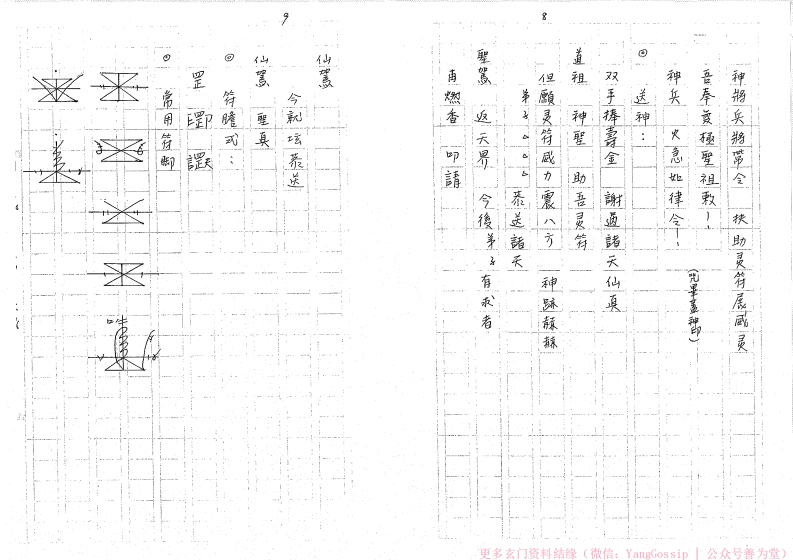 8
神將兵將帶令 扶助灵符展威灵
吾奉 極聖祖敕
神兵 火急如律令
(咒畢蓋神印)
◎ 送神：
双手捧壽金 謝過諸天仙真
道祖 神聖 助吾灵符
但願灵符威力震八方 神跡赫赫
弟子△△△ 恭送諸天
聖駕 返天界 今後弟子有求者
再燃香 叩請
9
仙駕
今就坛恭送
仙駕 聖真
◎ 符膽式：
罡
◎ 常用符脚
更多玄门资料结缘（微信：YangGossip | 公众号善为堂）